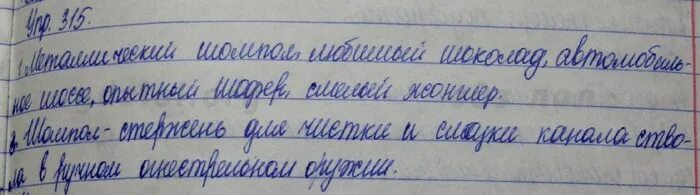 Упр. 315.
1. Металлический шомпол, любимый шоколад, автомобиль-
ное шоссе, опытный шофер, смелый жонглер.
2. Шомпол - стержень для чистки и смазки канала ство-
ла в ручном огнестрельном оружии.